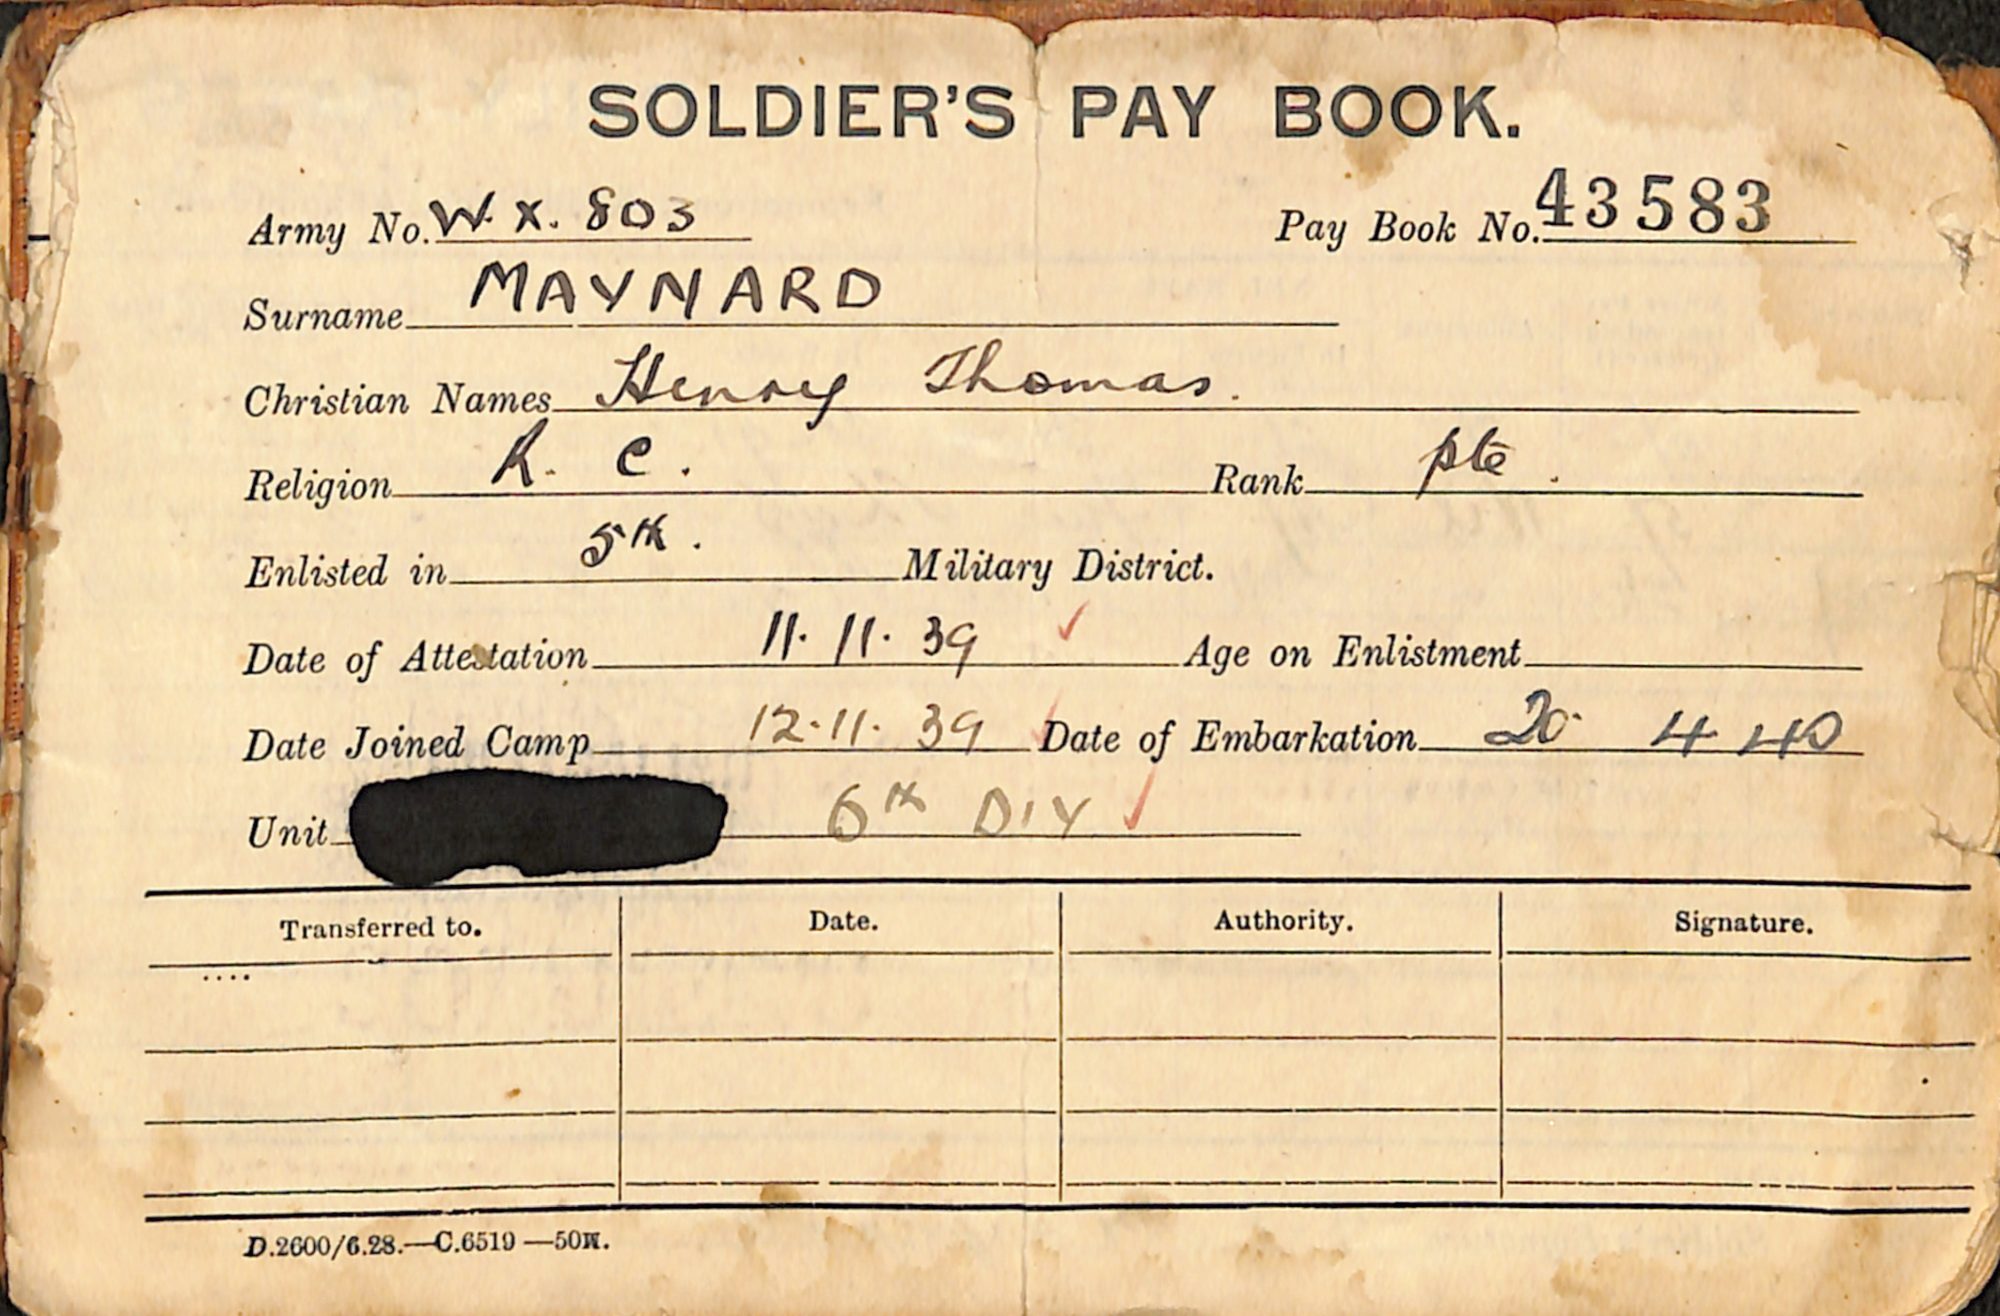 SOLDIER'S PAY BOOK.
Army No. W.X. 803 Pay Book No. 43583
Surname MAYNARD
Christian Names Henry Thomas.
Religion R. C. Rank pte.
Enlisted in 5th. Military District.
Date of Attestation 11. 11. 39 Age on Enlistment
Date Joined Camp 12.11. 39 Date of Embarkation 20 4 40
Unit 6th DIV
Transferred to. Date. Authority. Signature.
D.2600/6.28.—C.6519—50M.